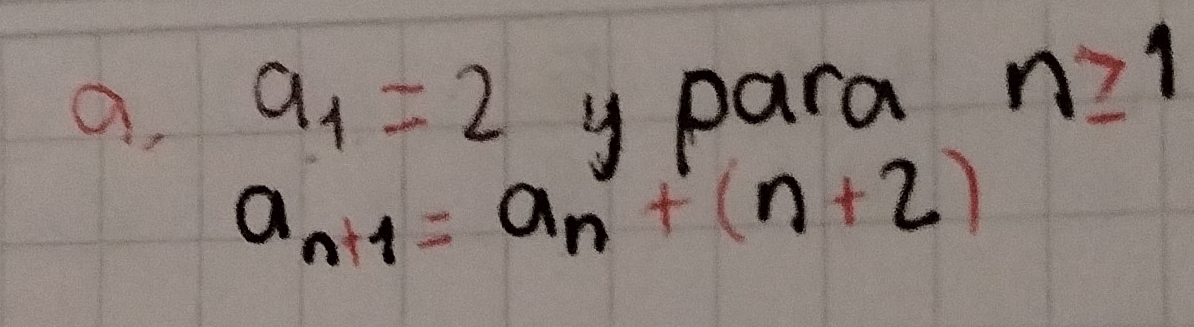 a. a₁ = 2 y para n ≥ 1
aₙ₊₁ = aₙ + (n + 2)